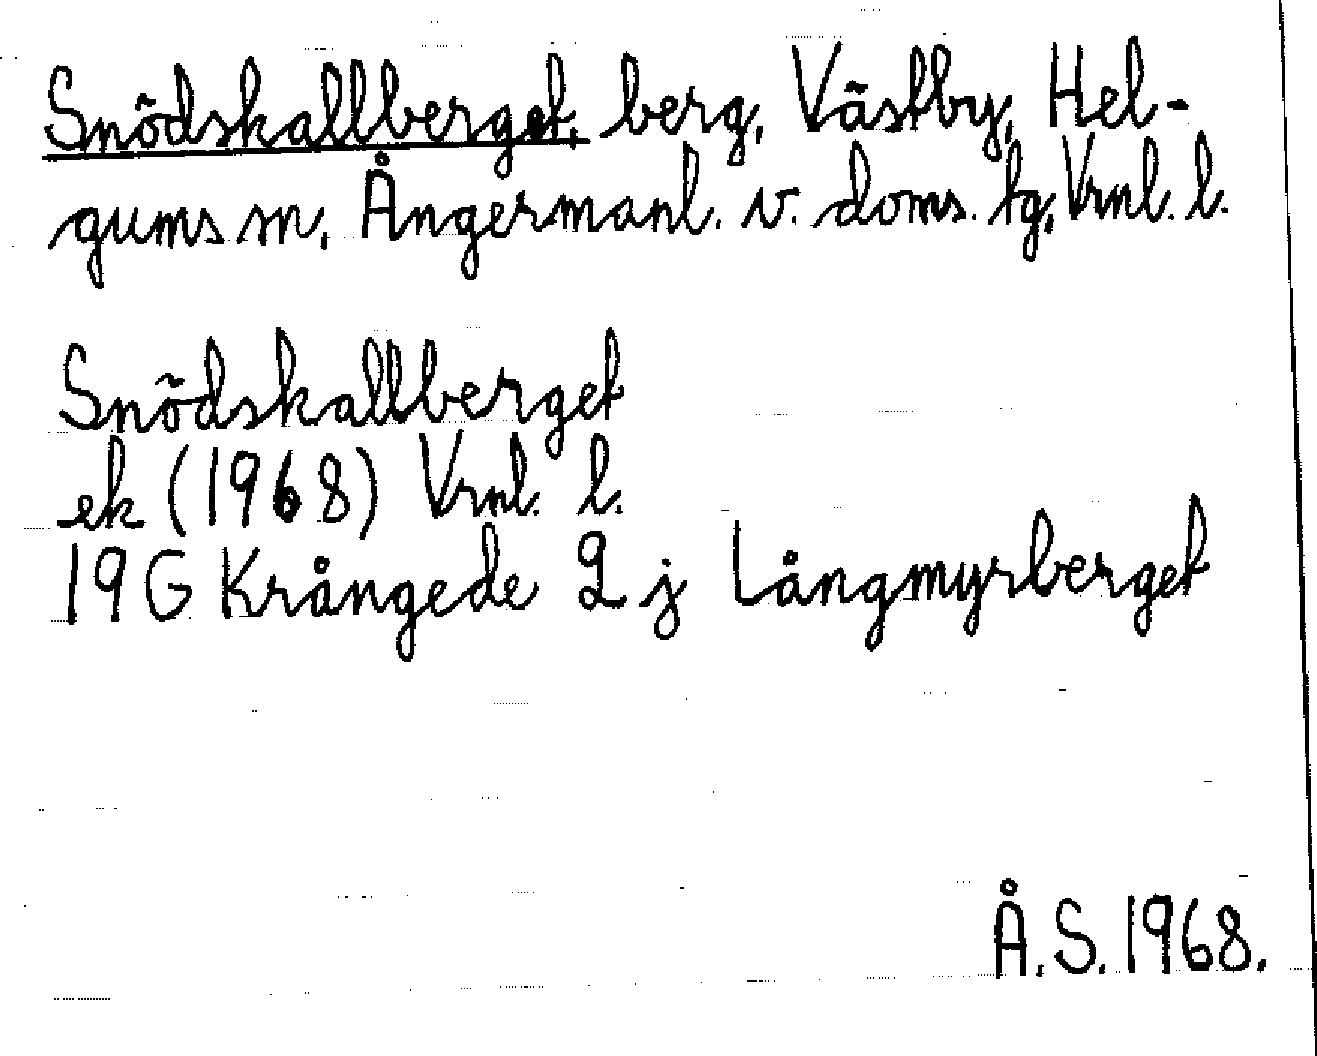 Snödskallberget, berg, Västby, Hel-
gums sn, Ångermanl. v. doms. tg, Vrnl. l.
Snödskallberget
ek (1968) Vrnl. l.
19G Krångede 2 j Långmyrberget
Å.S. 1968.